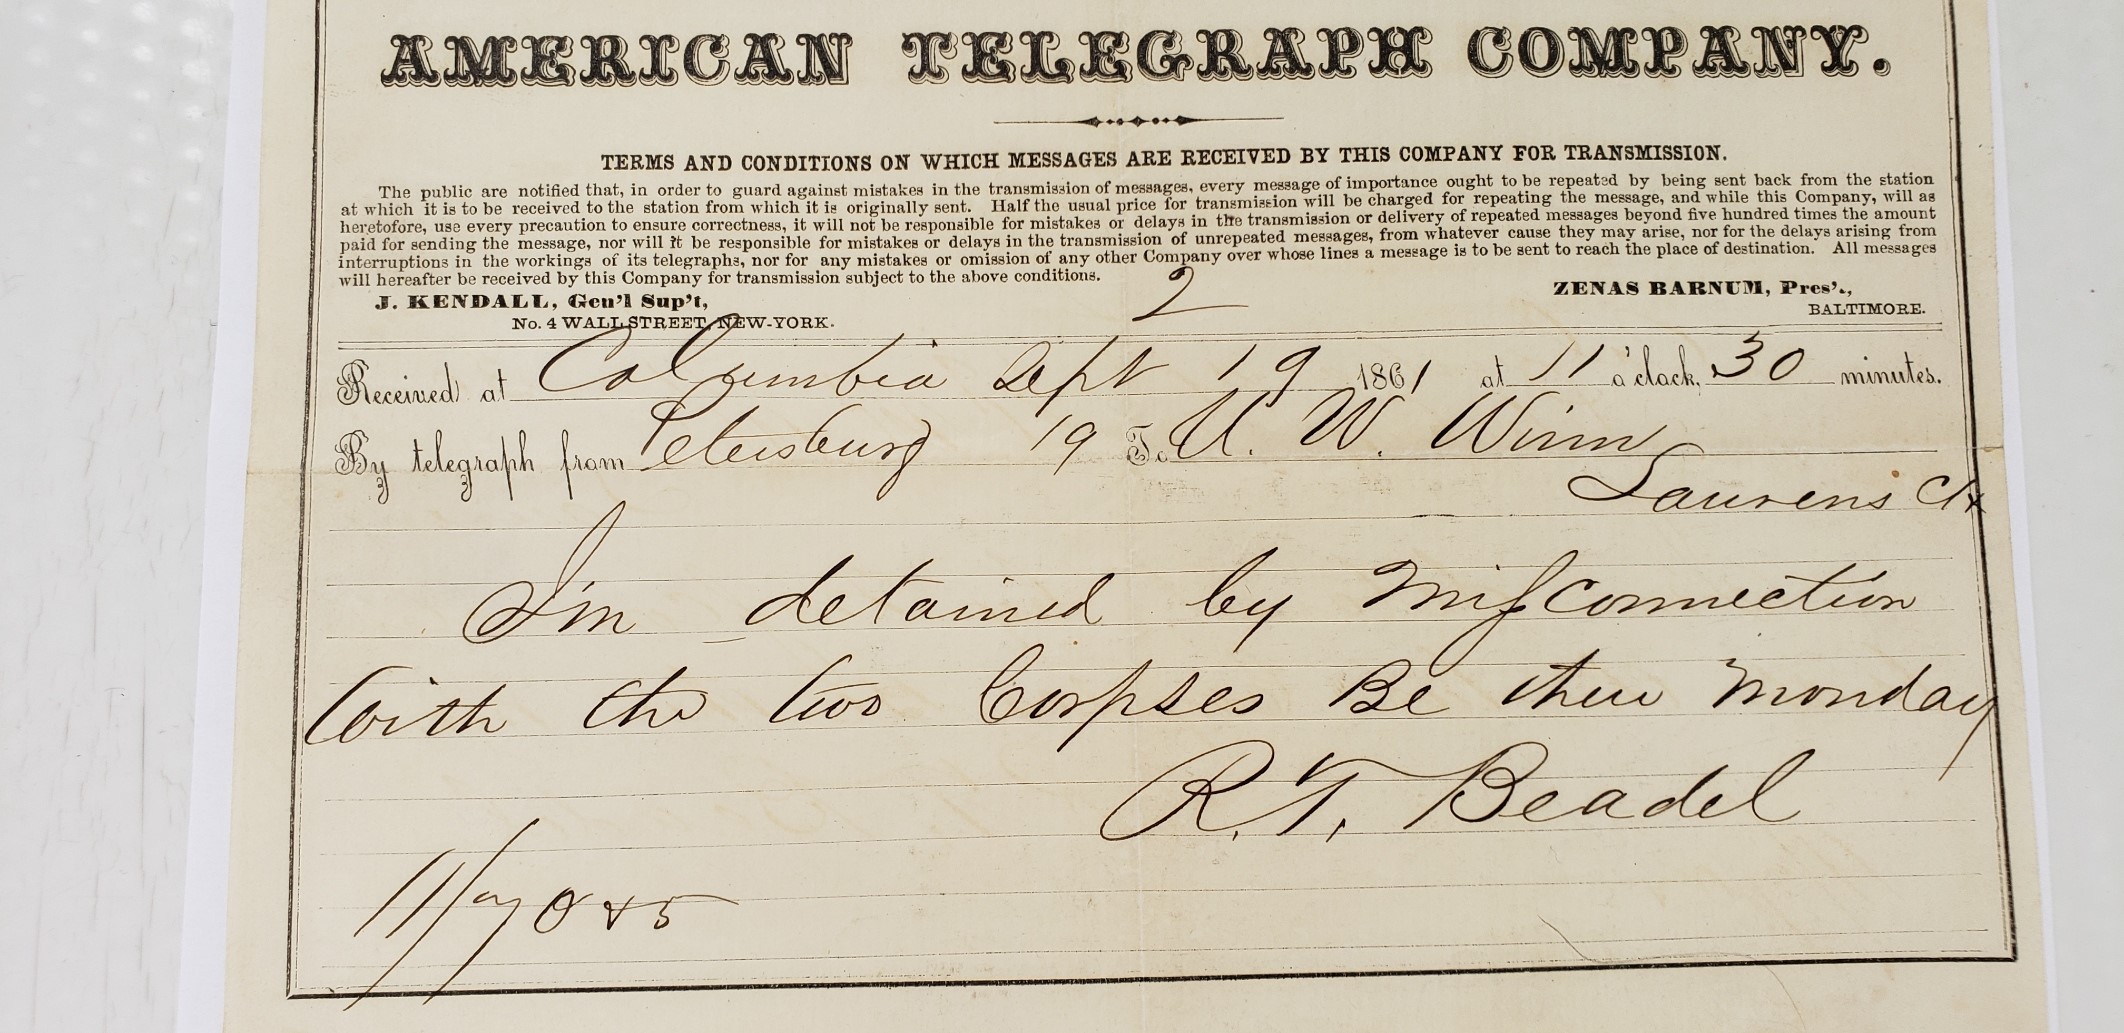 AMERICAN TELEGRAPH COMPANY.
TERMS AND CONDITIONS ON WHICH MESSAGES ARE RECEIVED BY THIS COMPANY FOR TRANSMISSION.
The public are notified that, in order to guard against mistakes in the transmission of messages, every message of importance ought to be repeated by being sent back from the station
at which it is to be received to the station from which it is originally sent. Half the usual price for transmission will be charged for repeating the message, and while this Company, will as
heretofore, use every precaution to ensure correctness, it will not be responsible for mistakes or delays in the transmission or delivery of repeated messages beyond five hundred times the amount
paid for sending the message, nor will it be responsible for mistakes or delays in the transmission of unrepeated messages, from whatever cause they may arise, nor for the delays arising from
interruptions in the workings of its telegraphs, nor for any mistakes or omission of any other Company over whose lines a message is to be sent to reach the place of destination. All messages
will hereafter be received by this Company for transmission subject to the above conditions.
J. KENDALL, Gen'l Sup't, 2 ZENAS BARNUM, Pres'.,
No. 4 WALL STREET, NEW-YORK. BALTIMORE.
Received at Columbia Sept 19 1861 at 11 o'clock, 30 minutes.
By telegraph from Petersburg 19 To W. W. Winn
Laurens CH
I'm detained by Misconnection
with the two Corpses Be there Monday
R. T. Beadel